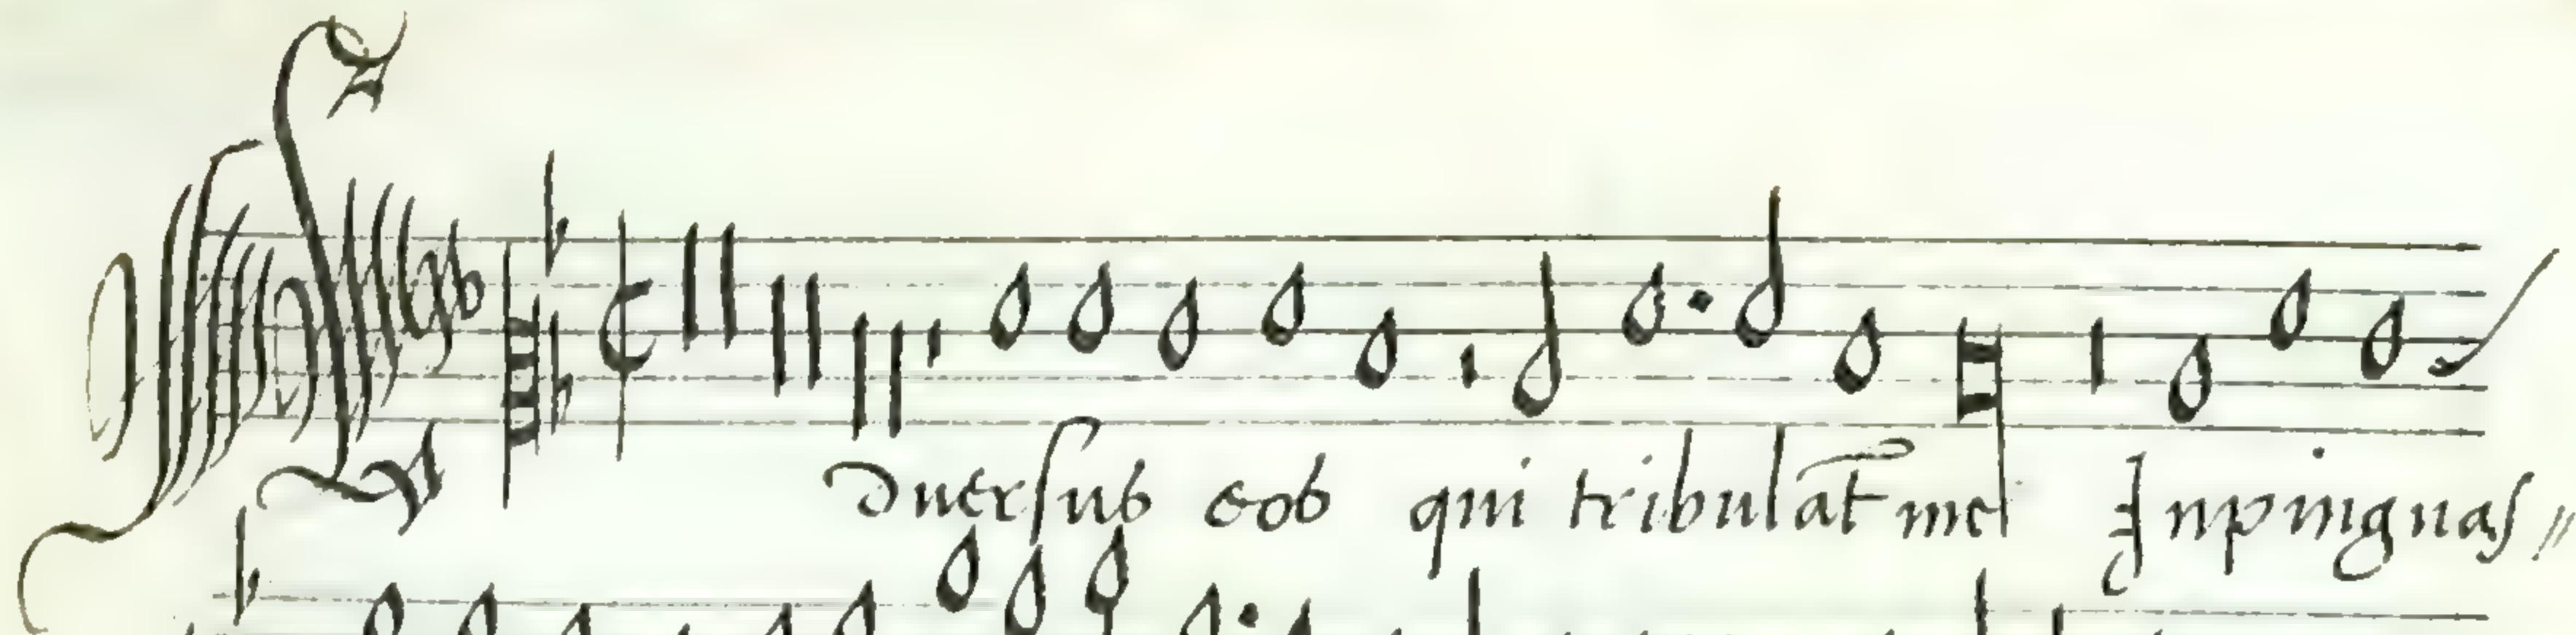 Aduersus eos qui tribulāt me Inpinguas〃